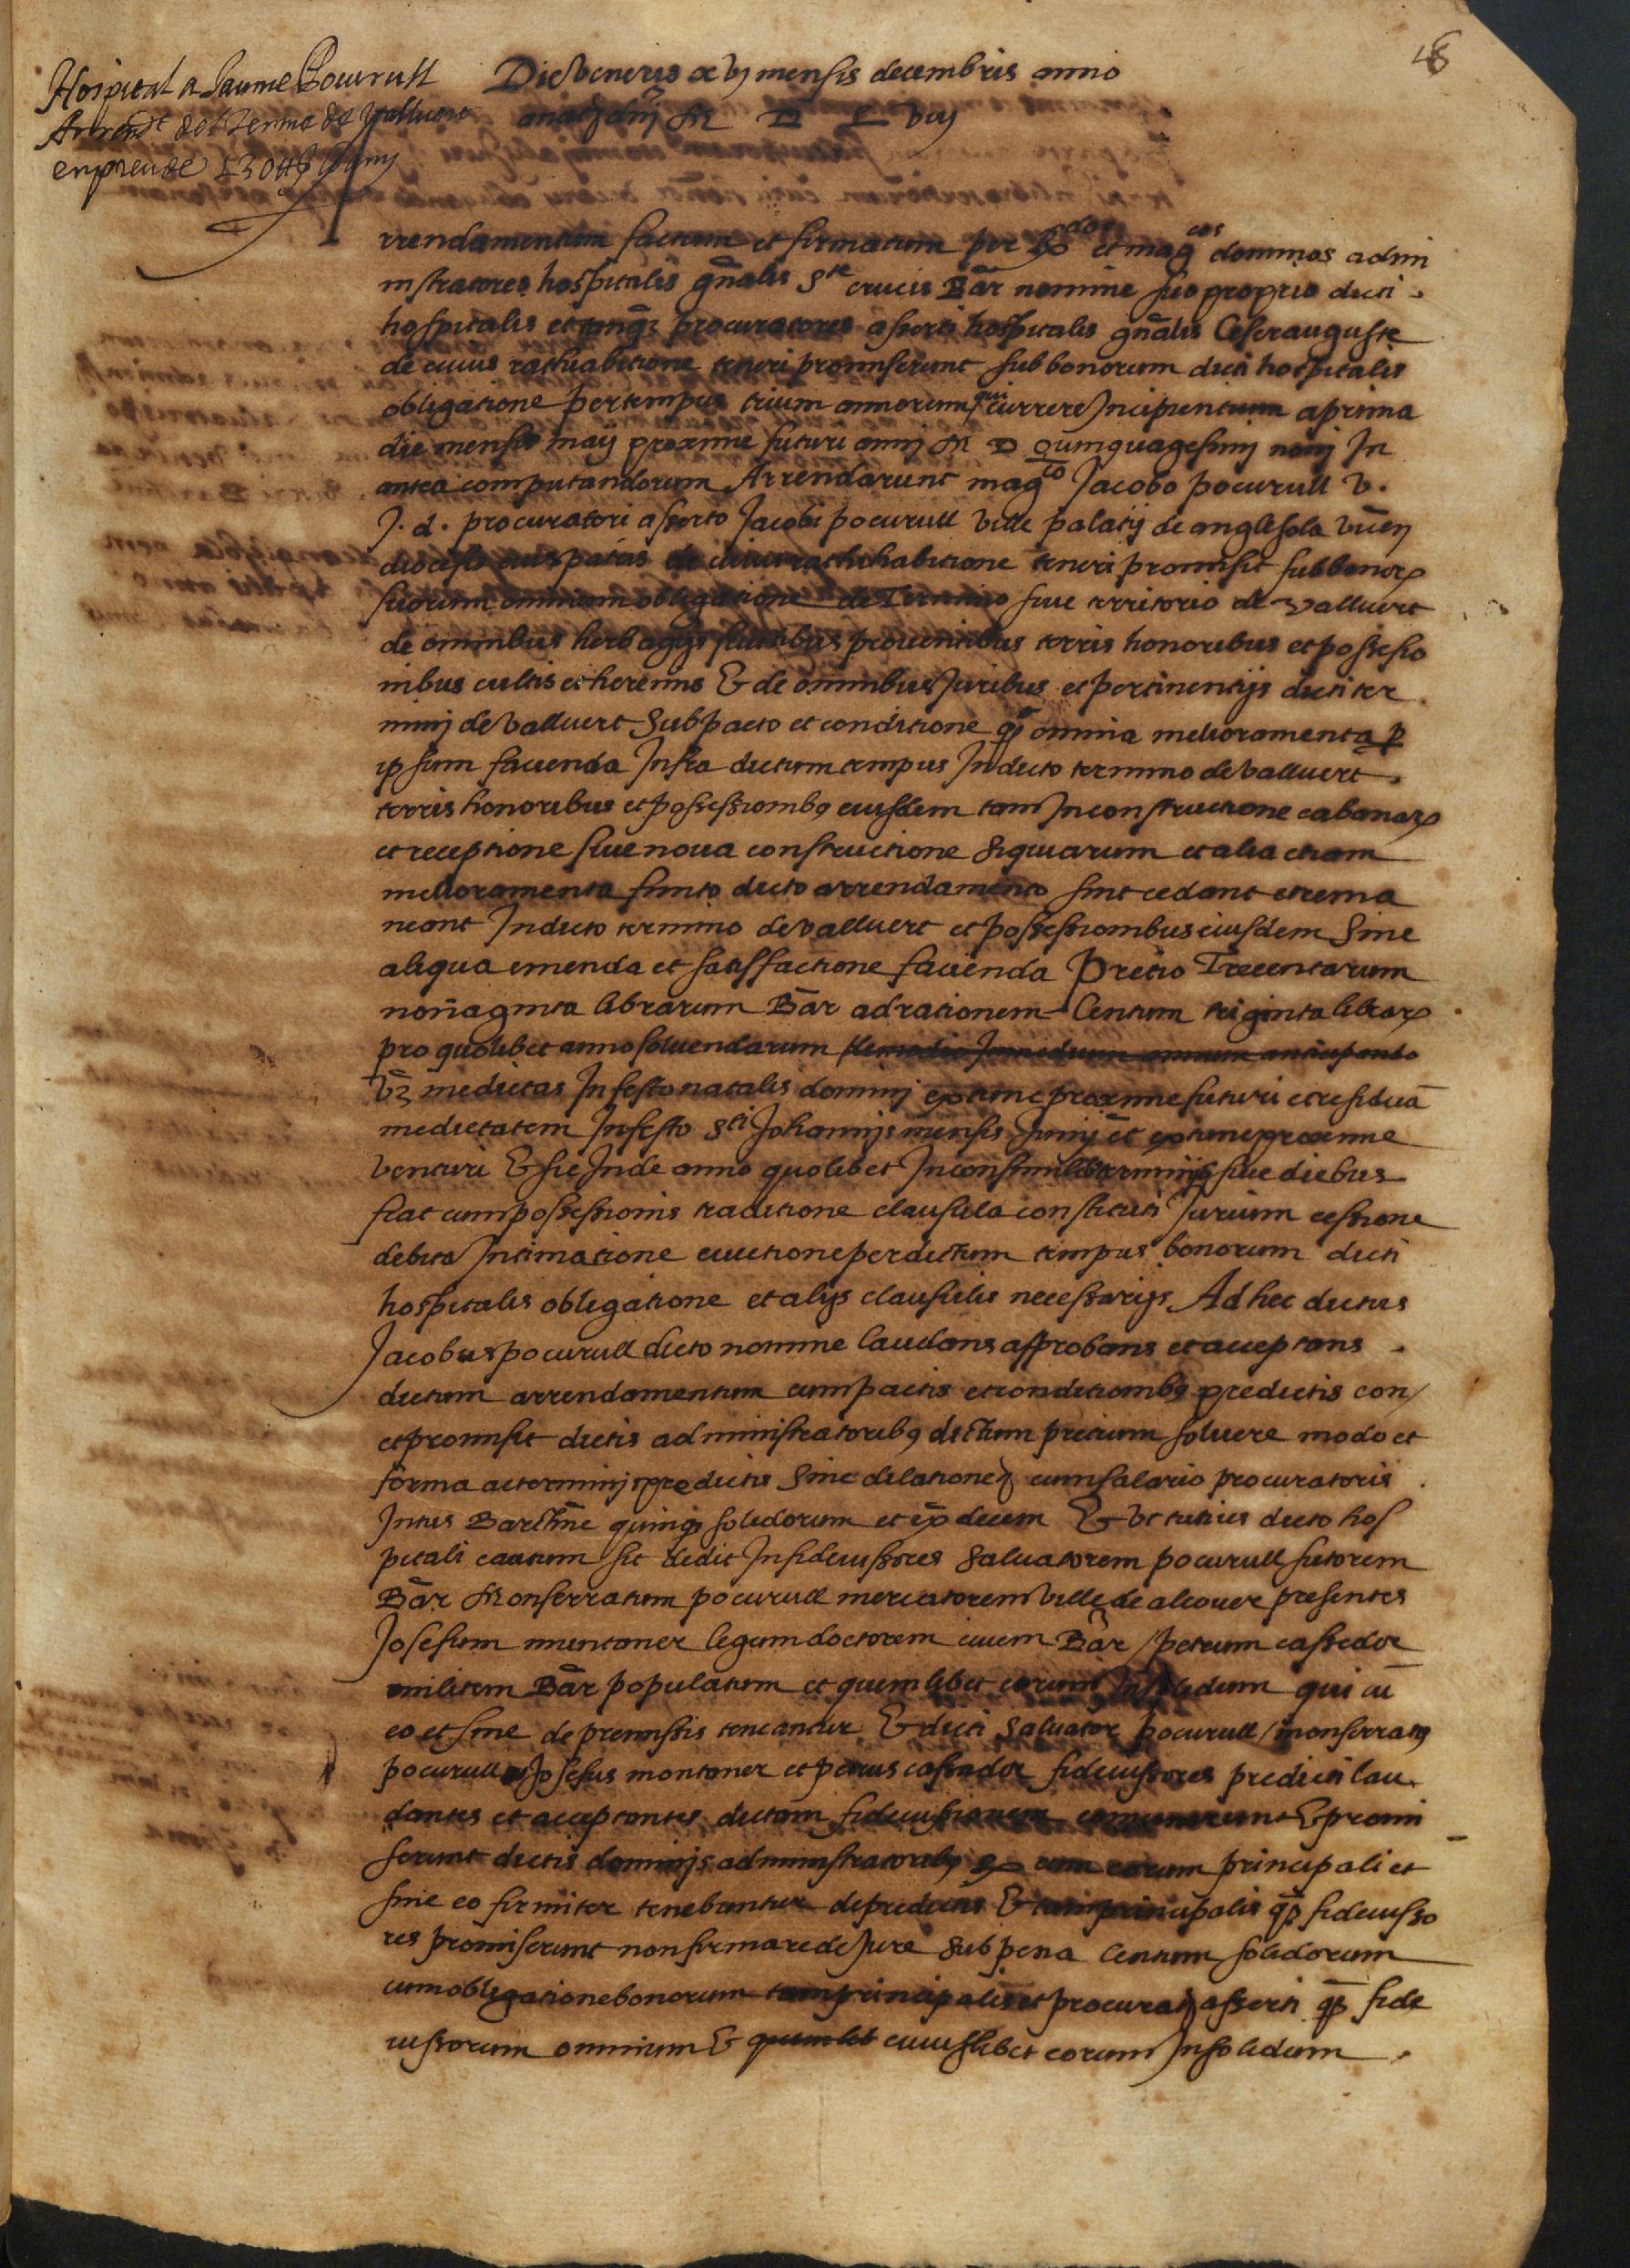 48
Hospital a Jaume Pocurull
Arrendt del Terme de Vallvert
en preu de 130 ll
Die veneris xvj mensis decembris anno
a natte dnj M D L viij
Arrendamentum factum et firmatum per Rdos et magcos dominos admi
nistratores hospitalis gñalis Ste crucis Bar nomine suo proprio dicti
hospitalis et tanq3 procuratores asserti hospitalis gñalis Cesarauguste
de cuius rathiabitione teneri promiserunt sub bonorum dicti hospitalis
obligatione per tempus trium annorum qui currere Incipientium a prima
die mensis maij proxime futuri annj M D quinquagesimj nonj In
antea computandorum Arrendarunt magco Jacobo pocurull v.
J. d. procuratori asserto Jacobi pocurull ville palatij de anglesola vicen
diocesis eius patris de cuius rathihabitione teneri promisit sub bonor
suorum omnium obligatione de Termino sive territorio de vallvert
de omnibus herbagijs fructibus proventibus terris honoribus et possesio
nibus cultis et heremis & de omnibus Juribus et pertinentijs dicti ter
minj de vallvert Sub pacto et conditione q omnia melioramenta p
ipsum facienda Infra dictum tempus In dicto termino de vallvert
terris honoribus et possessionib9 eiusdem tam In constructione cabanar
et receptione sive nova constructione siquiarum et alia etiam
melioramenta finito dicto arrendamento sint cedant et rema
neant In dicto termino de vallvert et possessionibus eiusdem Sine
aliqua emenda et satisfactione facienda Precio Trecentarum
nonaginta librarum Bar ad rationem Centum triginta librar
pro quolibet anno solvendarum de medio In medium annum anticipando
vz medietas In festo natalis dominj ex tunc proxime futuri et residua
medietatem In festo Sti Johannis mensis Junij et ex tunc proxime
venturi & sic Inde anno quolibet In consimilibus terminis sive diebus
fiat cum possessionis traditione clausula constituti Jurium cessione
debita Intimatione evictione per dictum tempus bonorum dicti
hospitalis obligatione et alijs clausulis necessarijs Ad hec dictus
Jacobus pocurull dicto nomine laudans approbans et acceptans
dictum arrendamentum cum pactis et conditionib9 predictis con/
et promisit dictis administratorib9 dictum precium solvere modo et
forma ac terminis predictis Sine dilatione cum salario procuratoris
Intus Barchne quinq solidorum et ex decem & Ut tutius dicto hos
pitali cautum sit dedit In fideiussores Salvatorem pocurull sutorem
Bar Monserratum pocurull mercatorem ville de alcover presentes
Josefum montaner legum doctorem civem Bar / petrum cassador
militem Bar populatum et quemlibet eorum In solidum qui cu
eo et sine de premissis teneantur & dicti Salvator pocurull / monserrat9
pocurull Josefus montaner et petrus cassador fideiussores predicti lau
dantes et acceptantes dictam fideiussionem convenerunt & promi
serunt dictis dominis administratorib9 cum eorum principali et
sine eo firmiter tenebuntur de predictis & tam principalis q fideiusso
res promiserunt non firmare de Jure Sub pena Centum solidorum
cum obligatione bonorum tam principalis et procurat asserti q fide
iussorum omnium & quemlib cuiuslibet eorum In solidum